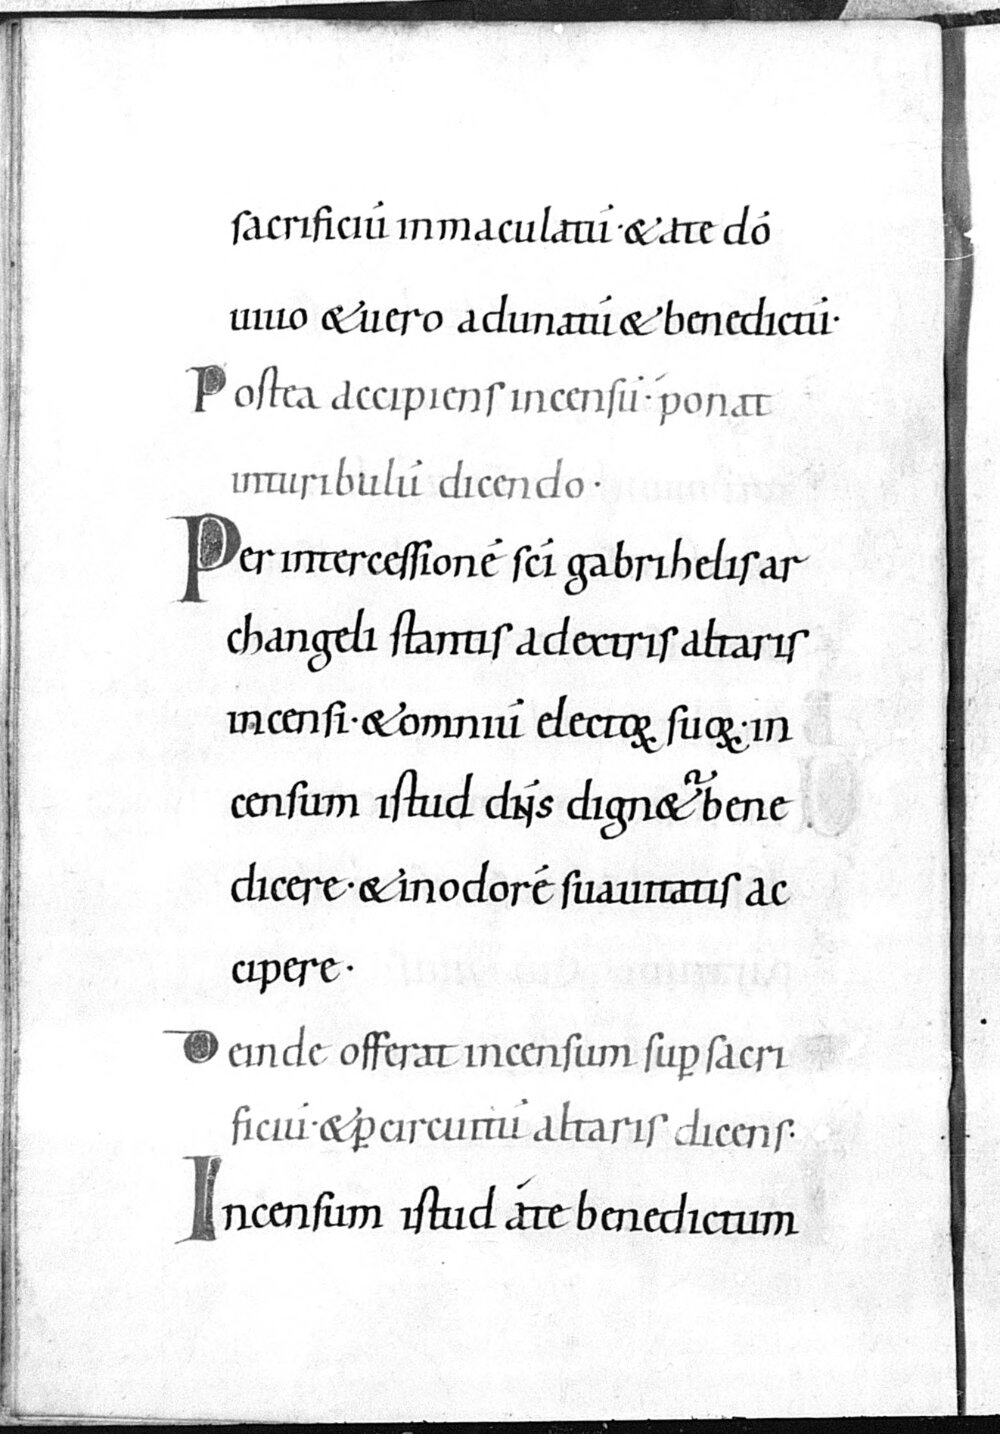 sacrificiū inmaculatū· & a te dō
uiuo & uero adunatū & benedictū·
Postea accipiens incensū· ponat
inturibulū dicendo·
Per intercessionē sc̄i gabrihelis ar
changeli stantis adextris altaris
incensi· & omniū electoꝝ suoꝝ· in
censum istud dn̄s dign&ur bene
dicere· & inodorē suauitatis ac
cipere·
Deinde offerat incensum suꝑ sacri
ficiū· & ꝑcircuitū altaris dicens·
Incensum istud a te benedictum